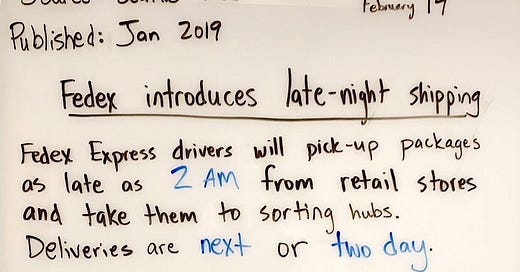 February 19
Published: Jan 2019
Fedex introduces late-night shipping
Fedex Express drivers will pick-up packages
as late as 2 AM from retail stores
and take them to sorting hubs.
Deliveries are next or two day.